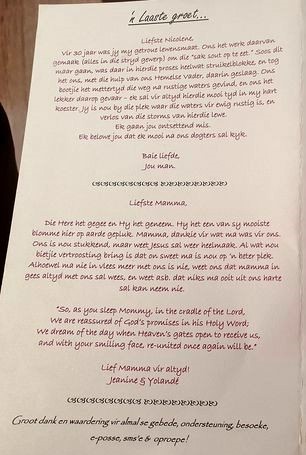 'n Laaste groet...
Liefste Nicolene,
Vir 30 jaar was jy my getroue lewensmaat. Ons het werk daarvan
gemaak (alles in die stryd gewerp) om die "sak sout op te eet." Soos dit
maar gaan, was daar in hierdie proses heelwat struikelblokke, en tog
het ons, met die hulp van ons Hemelse Vader, daarin geslaag. Ons
bootjie het mettertyd die weg na rustige waters gevind, en ons het
lekker daarop gevaar – ek sal vir altyd hierdie mooi tyd in my hart
koester. Jy is nou by die plek waar die waters vir ewig rustig is, en
verlos van die storms van hierdie lewe.
Ek gaan jou ontsettend mis.
Ek belowe jou dat ek mooi na ons dogters sal kyk.
Baie liefde,
Jou man.
Liefste Mamma,
Die Here het gegee en Hy het geneem. Hy het een van sy mooiste
blomme hier op aarde gepluk. Mamma, dankie vir wat ma was vir ons.
Ons is nou stukkend, maar weet Jesus sal weer heelmaak. Al wat nou
bietjie vertroosting bring is dat on sweet ma is nou op 'n beter plek.
Alhoewel ma nie in vlees meer met ons is nie, weet ons dat mamma in
gees altyd met ons sal wees, en weet asb. dat niks ma ooit uit ons harte
sal kan neem nie.
"So, as you sleep Mommy, in the cradle of the Lord,
We are reassured of God's promises in his Holy Word;
We dream of the day when Heaven's gates open to receive us,
and with your smiling face, re-united once again will be."
Lief Mamma vir altyd!
Jeanine & Yolandé
Groot dank en waardering vir almal se gebede, ondersteuning, besoeke,
e-posse, sms'e & oproepe!